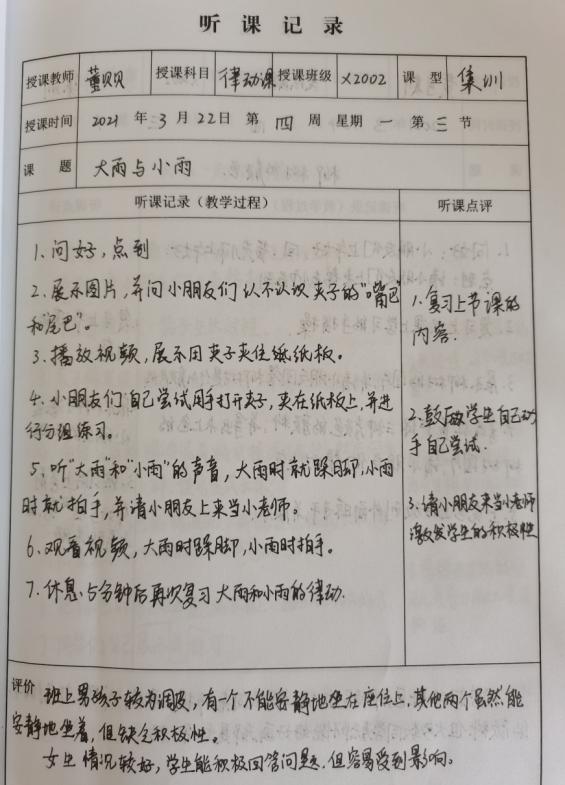 听课记录
授课教师 董贝贝 授课科目 律动课 授课班级 X2002 课型 集训
授课时间 2021 年 3 月 22 日 第 四 周 星期 一 第 三 节
课题 大雨与小雨
听课记录（教学过程） 听课点评
1. 问好，点到
2. 展示图片，并问小朋友们认不认识夹子的“嘴巴”
和尾巴”。
3. 播放视频，展示用夹子夹住纸板。
4. 小朋友们自己尝试用手打开夹子，夹在纸板上，并进
行分组练习。
5. 听“大雨”和“小雨”的声音，大雨时就跺脚，小雨
时就拍手，并请小朋友上来当小老师。
6. 观看视频，大雨时跺脚，小雨时拍手。
7. 休息5分钟后再次复习大雨和小雨的律动.
1. 复习上节课的
内容.
2. 鼓励学生自己动
手自己尝试.
3. 请小朋友来当小老师
激发学生的积极性
评价 班上男孩子较为调皮，有一个不能安静地坐在座位上，其他两个虽然能
安静地坐着，但缺乏积极性。
女生情况较好，学生能积极回答问题，但容易受到影响。